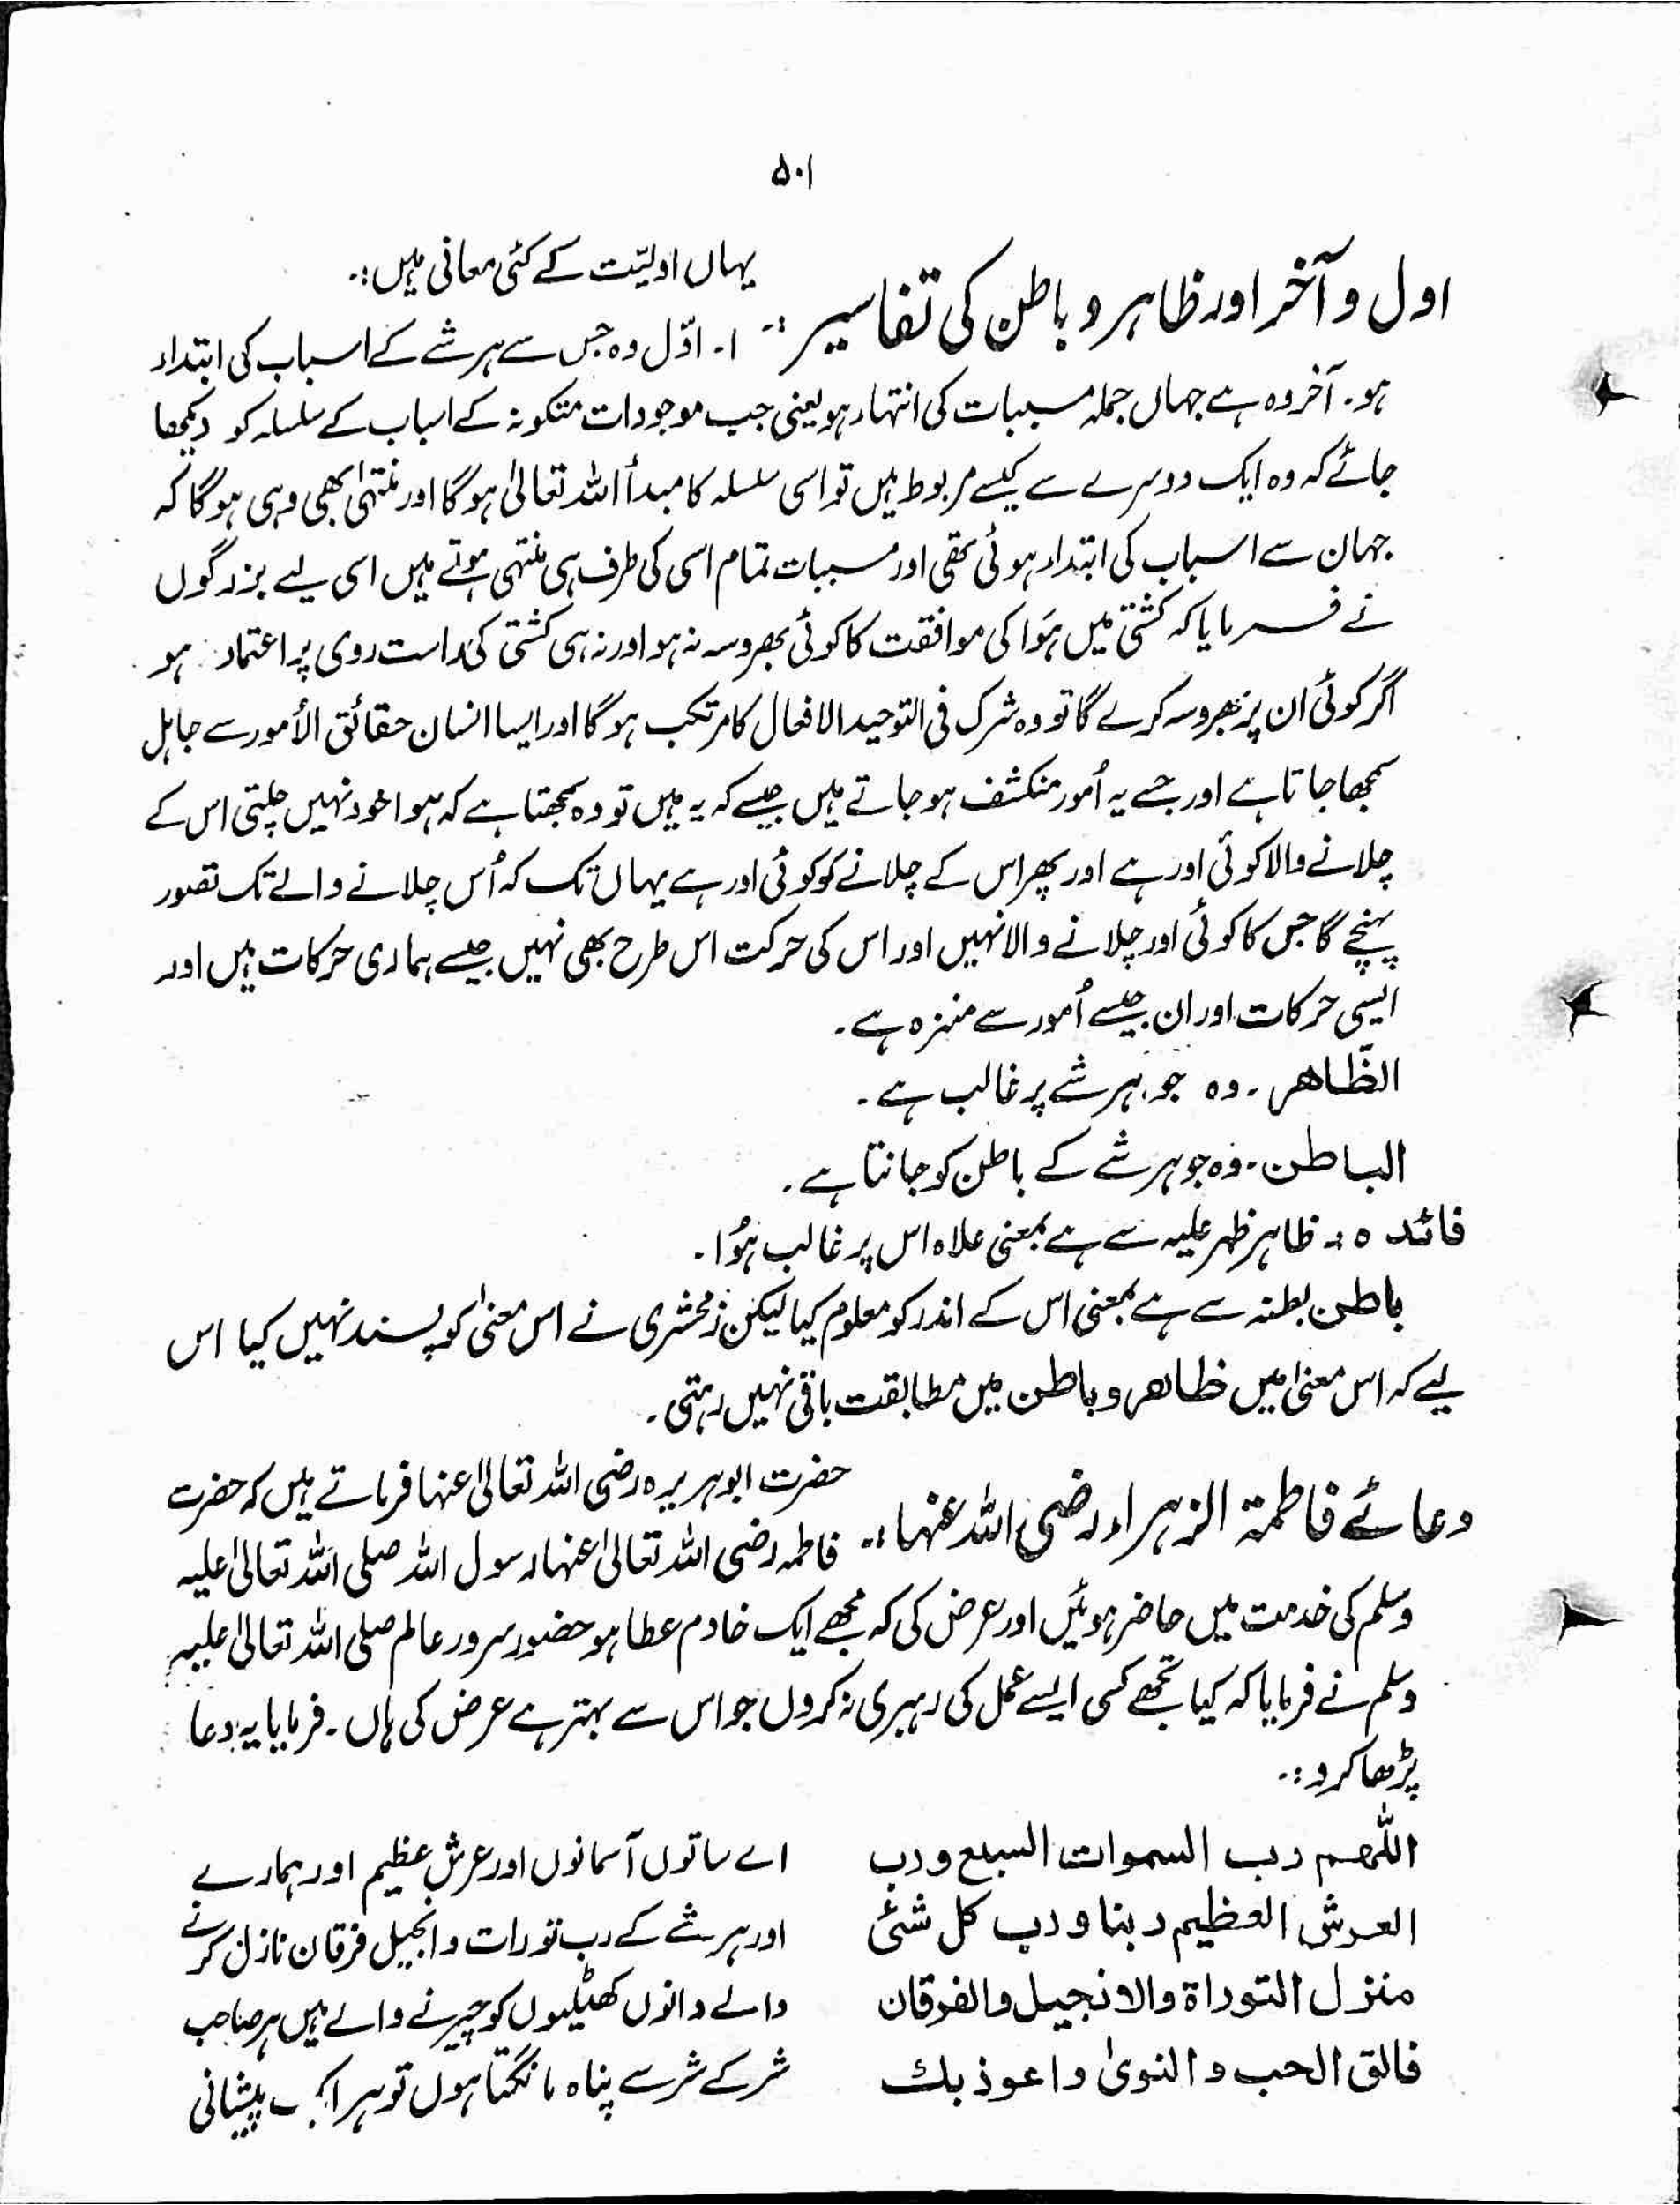 ۵۰۱
اول و آخر اور ظاہر و باطن کی تفاسیر :۔
یہاں اولیّت کے کئی معانی ہیں :۔
۱۔ اوّل وہ جس سے ہر شے کے اسباب کی ابتداء
ہو۔ آخر وہ ہے جہاں جملہ مسببات کی انتہاء ہو یعنی جب موجودات متکونہ کے اسباب کے سلسلہ کو دیکھا
جائے کہ وہ ایک دوسرے سے کیسے مربوط ہیں تو اسی سلسلہ کا مبدأ اللہ تعالیٰ ہوگا اور منتہیٰ بھی وہی ہوگا کہ
جہان سے اسباب کی ابتداء ہوئی تھی اور مسببات تمام اسی کی طرف ہی منتہی ہوتے ہیں اسی لیے بزرگوں
نے فرمایا کہ کشتی میں ہَوا کی موافقت کا کوئی بھروسہ نہ ہو اور نہ ہی کشتی کی راست روی پر اعتماد ہو
اگر کوئی ان پر بھروسہ کرے گا تو وہ شرک فی التوحید الافعال کا مرتکب ہوگا اور ایسا انسان حقائق الأمور سے جاہل
سمجھا جاتا ہے اور جسے یہ اُمور منکشف ہو جاتے ہیں جیسے کہ یہ ہیں تو وہ سمجھتا ہے کہ ہوا خود نہیں چلتی اس کے
چلانے والا کوئی اور ہے اور پھر اس کے چلانے کو کوئی اور ہے یہاں تک کہ اُس چلانے والے تک تصور
پہنچے گا جس کا کوئی اور چلانے والا نہیں اور اس کی حرکت اس طرح بھی نہیں جیسے ہماری حرکات ہیں اور
ایسی حرکات اور ان جیسے اُمور سے منزہ ہے۔
الظّاھر۔ وہ جو ہر شے پر غالب ہے۔
الباطن۔ وہ جو ہر شے کے باطن کو جانتا ہے۔
فائدہ :۔ ظاہر ظہر علیہ سے ہے بمعنی علاہ اس پر غالب ہُوا۔
باطن بطنہ سے ہے بمعنی اس کے اندر کو معلوم کیا لیکن زمخشری نے اس معنیٰ کو پسند نہیں کیا اس
لیے کہ اس معنیٰ میں ظاھر و باطن میں مطابقت باقی نہیں رہتی۔
دعائے فاطمۃ الزہراء رضی اللہ عنہا :۔
حضرت ابوہریرہ رضی اللہ تعالیٰ عنہا فرماتے ہیں کہ حضرت
فاطمہ رضی اللہ تعالیٰ عنہا رسول اللہ صلی اللہ تعالیٰ علیہ
وسلم کی خدمت میں حاضر ہوئیں اور عرض کی کہ مجھے ایک خادم عطا ہو حضور سرور عالم صلی اللہ تعالیٰ علیہ
وسلم نے فرمایا کہ کیا تجھے کسی ایسے عمل کی رہبری نہ کروں جو اس سے بہتر ہے عرض کی ہاں۔ فرمایا یہ دعا
پڑھا کرو :۔
اللّٰھم رب السموات السبع ورب
العرش العظیم ربنا ورب کل شئ
منزل التوراۃ والانجیل والفرقان
فالق الحب والنویٰ واعوذ بك
اے ساتوں آسمانوں اور عرش عظیم اور ہمارے
اور ہر شے کے رب تورات و انجیل فرقان نازل کرنے
والے دانوں گھٹلیوں کو چیرنے والے میں ہر صاحب
شر کے شر سے پناہ مانگتا ہوں تو ہر پیشانی